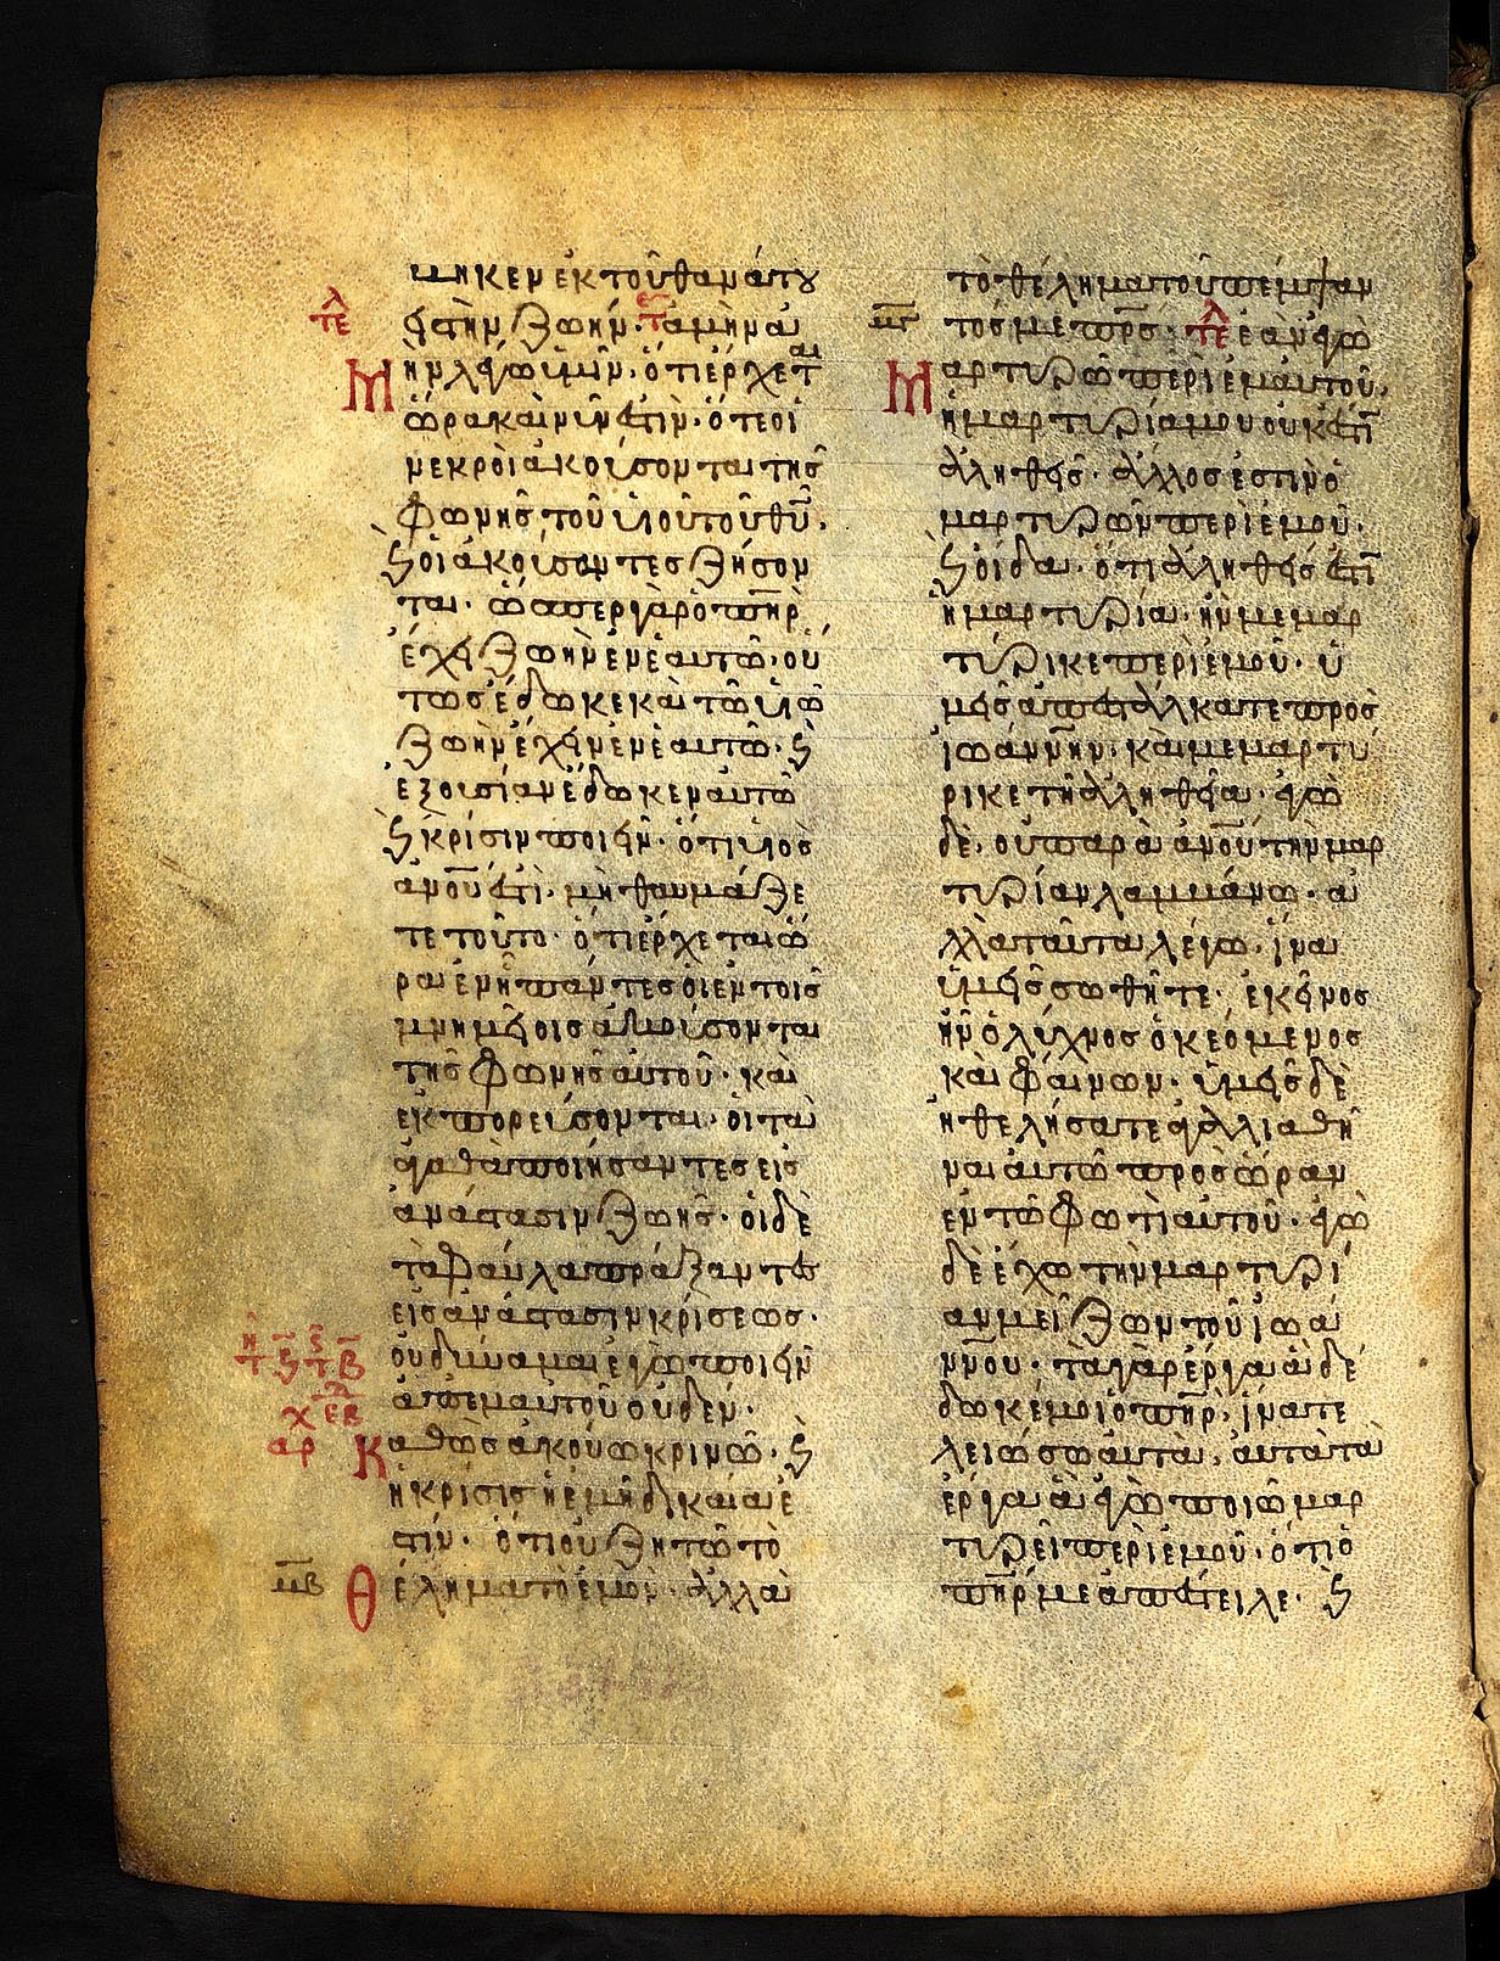 βηκεν ἐκ τοῦ θανάτου
εἰς τὴν ζωήν. ἀμὴν ἀ
μὴν λέγω ὑμῖν. ὅτι ἔρχεται
ὥρα καὶ νῦν ἐστὶν. ὅτε οἱ
νεκροὶ ἀκούσονται τῆς
φωνῆς τοῦ υἱοῦ τοῦ θῦ.
ϗ οἱ ἀκούσαντες ζήσον
ται. ὥσπερ γὰρ ὁ πηρ
ἔχει ζωὴν ἐν ἑαυτῶ. οὕ
τως ἔδωκε καὶ τῶ υἱῶ
ζωὴν ἔχειν ἐν ἑαυτῶ. ϗ
ἐξουσίαν ἔδωκεν αὐτῶ
ϗ κρίσιν ποιεῖν. ὅτι υἱὸς
ἀνου ἐστὶ. μὴ θαυμάζε
τε τοῦτο. ὅτι ἔρχεται ὥ
ρα ἐν ἧ πάντες οἱ ἐν τοῖς
μνημείοις ἀκούσονται
τῆς φωνῆς αὐτοῦ. καὶ
ἐκπορεύσονται. οἱ τὰ
ἀγαθὰ ποιήσαντες εἰς
ἀνάστασιν ζωῆς. οἱ δὲ
τὰ φαῦλα πράξαντες
εἰς ἀνάστασιν κρίσεως.
οὐ δύναμαι ἐγὼ ποιεῖν
ἀπ' ἐμαυτοῦ οὐδέν.
Καθὼς ἀκούω κρινῶ. ϗ
ἡ κρίσις ἡ ἐμὴ δικαία ἐ
στίν. ὅτι οὐ ζητῶ τὸ
μβ Θέλημα τὸ ἐμὸν. ἀλλὰ
τὸ θέλημα τοῦ πέμψαν
μγ τός με πρς. τε ἐὰν ἐγὼ
Μαρτυρῶ περὶ ἐμαυτοῦ,
ἡ μαρτυρία μου οὐκ ἐστῖ
ἀληθής. ἄλλος ἐστὶν ὁ
μαρτυρῶν περὶ ἐμοῦ.
ϗ οἶδα. ὅτι ἀληθής ἐστῖ
ἡ μαρτυρία. ἣν μεμαρ
τύρικε περὶ ἐμοῦ. ὑ
μεῖς ἀπεστάλκατε πρὸς
ἰωάννην. καὶ μεμαρτύ
ρικε τῆ ἀληθεία. ἐγὼ
δὲ. οὐ παρὰ ἀνου τὴν μαρ
τυρίαν λαμβάνω. ἀ
λλὰ ταῦτα λέγω. ἵνα
ὑμεῖς σωθῆτε. ἐκεῖνος
ἦν ὁ λύχνος ὁ κεόμενος
καὶ φαίνων. ὑμεῖς δὲ
ἠθελήσατε ἀγαλλιαθῆ
ναι αὐτῶ πρὸς ὥραν
ἐν τῶ φωτὶ αὐτοῦ. ἐγὼ
δὲ ἔχω τὴν μαρτυρί
αν μείζων τοῦ ἰωά
ννου. τὰ γὰρ ἔργα ἃ δέ
δωκέ μοι ὁ πηρ. ἵνα τε
λειώσω αὐτὰ. αὐτὰ τὰ
ἔργα ἃ ἐγὼ ποιῶ μαρ
τυρεῖ περὶ ἐμοῦ. ὅτι ὁ
πηρ με ἀπέστειλε. ϗ